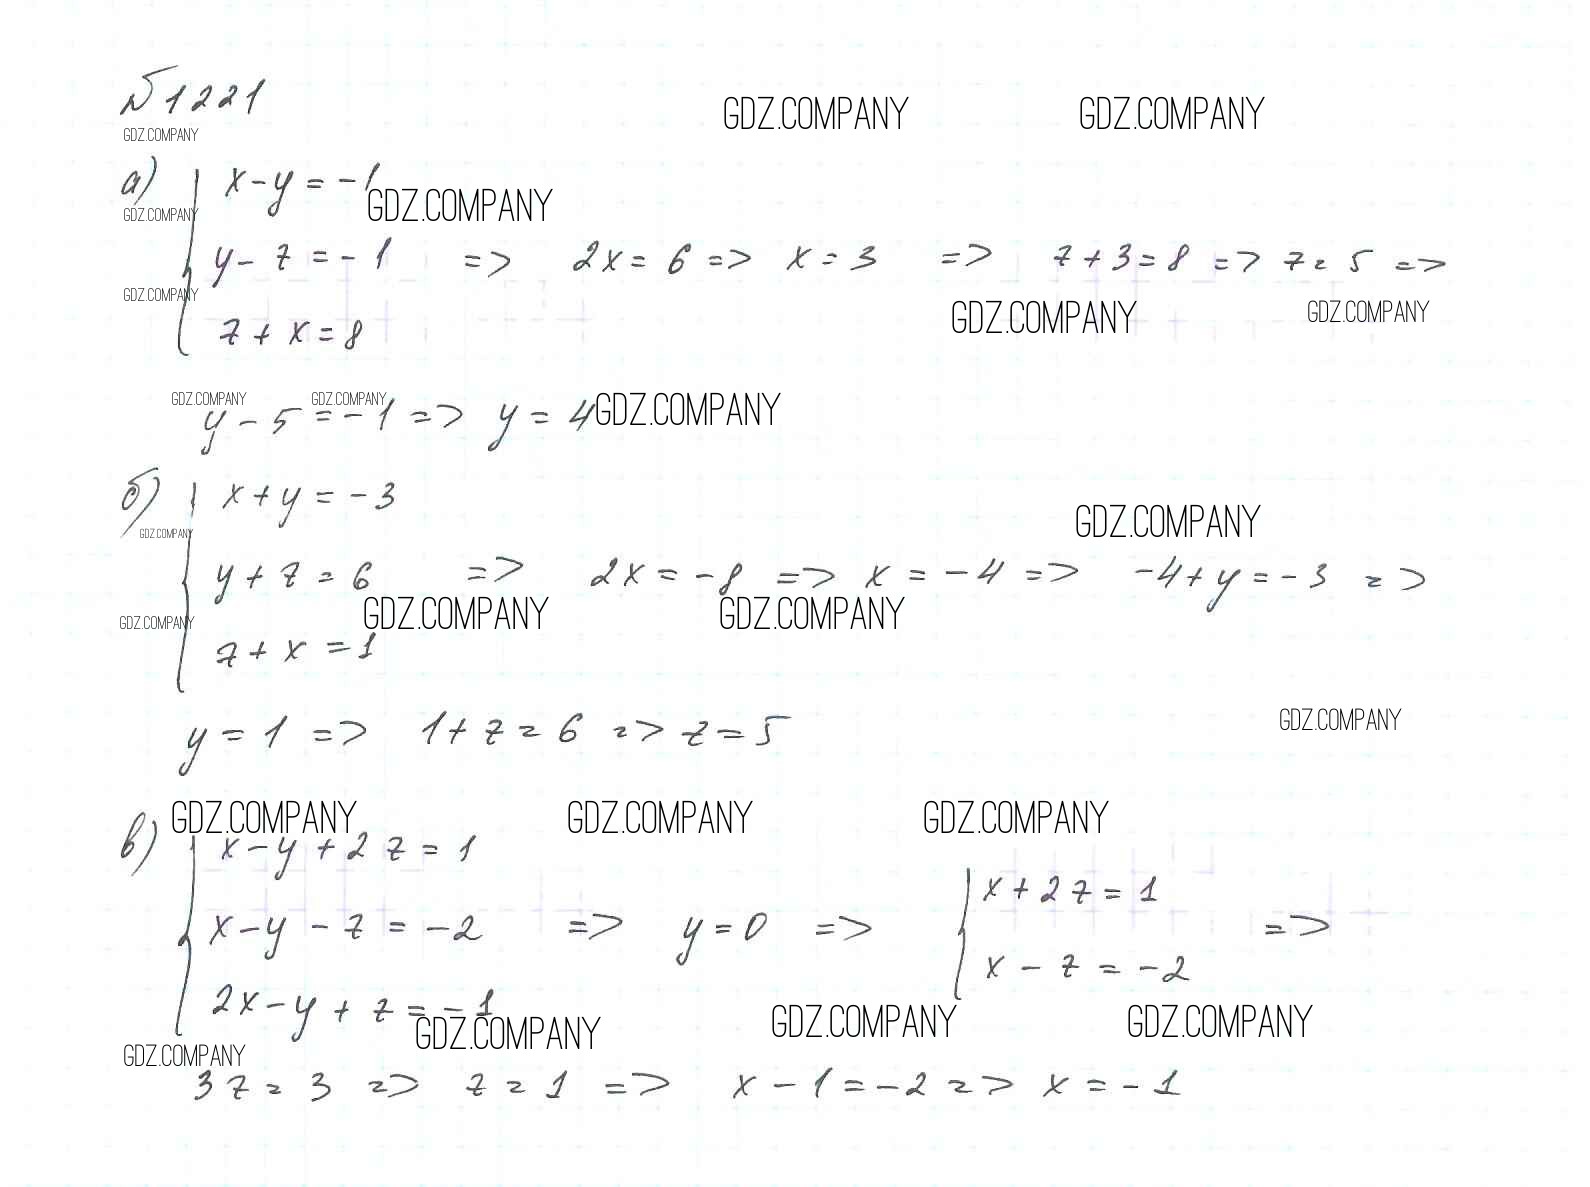 №1221
GDZ.COMPANY GDZ.COMPANY
GDZ.COMPANY
а) x-y=-1
GDZ.COMPANY GDZ.COMPANY
y-z=-1 => 2x=6 => x=3 => z+3=8 => z=5 =>
GDZ.COMPANY GDZ.COMPANY GDZ.COMPANY
z+x=8
GDZ.COMPANY GDZ.COMPANY GDZ.COMPANY
y-5=-1 => y=4
б) x+y=-3
GDZ.COMPANY GDZ.COMPANY
y+z=6 => 2x=-8 => x=-4 => -4+y=-3 =>
GDZ.COMPANY GDZ.COMPANY GDZ.COMPANY
z+x=1
GDZ.COMPANY
y=1 => 1+z=6 => z=5
GDZ.COMPANY GDZ.COMPANY GDZ.COMPANY
в) x-y+2z=1
x+2z=1
x-y-z=-2 => y=0 => =>
x-z=-2
2x-y+z=-1
GDZ.COMPANY GDZ.COMPANY GDZ.COMPANY
GDZ.COMPANY
3z=3 => z=1 => x-1=-2 => x=-1